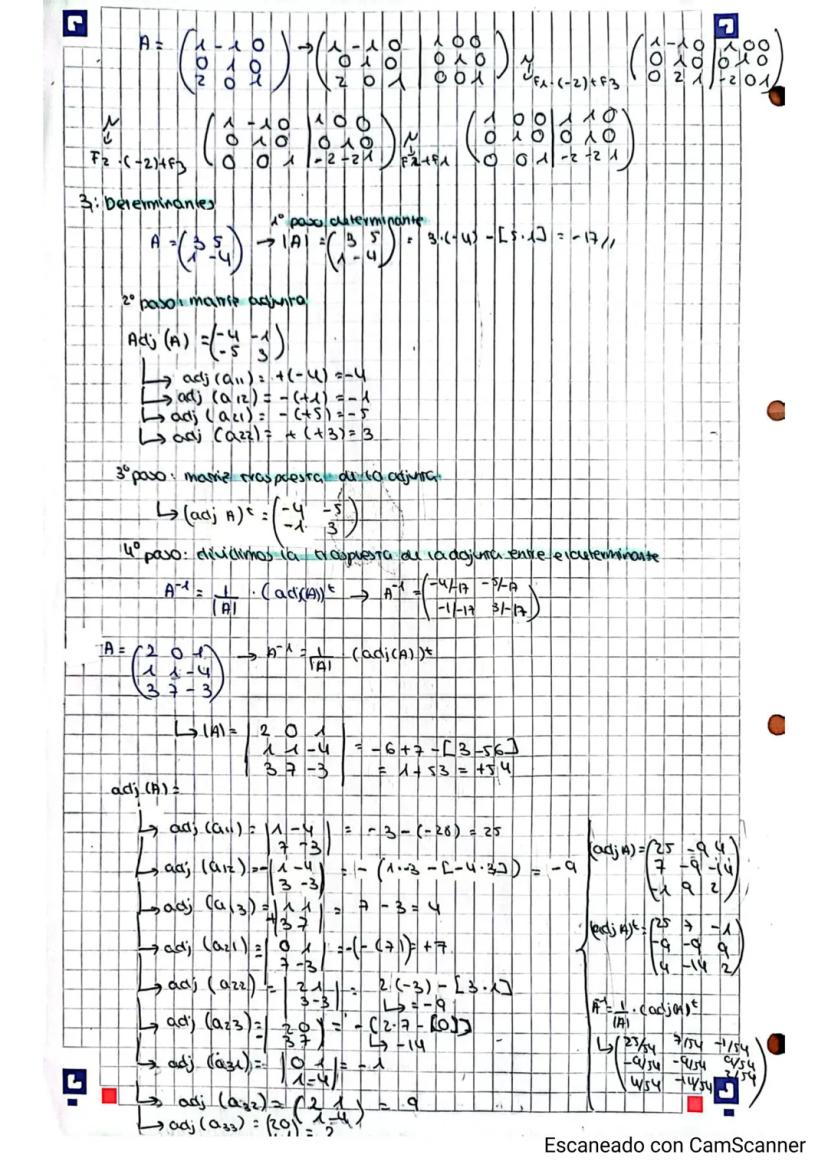 A = (1 -1 0 / 0 1 0 / 2 0 1) → (1 -1 0 | 1 0 0 / 0 1 0 | 0 1 0 / 2 0 1 | 0 0 1) ~ F1·(-2)+F3 (1 -1 0 | 1 0 0 / 0 1 0 | 0 1 0 / 0 2 1 | -2 0 1)
~ F2·(-2)+F3 (1 -1 0 | 1 0 0 / 0 1 0 | 0 1 0 / 0 0 1 | -2 -2 1) ~ F2+F1 (1 0 0 | 1 1 0 / 0 1 0 | 0 1 0 / 0 0 1 | -2 -2 1)
3: Determinantes
1º paso determinante
A = (3 5 / 1 -4) → |A| = (3 5 / 1 -4) = 3·(-4) - [5·1] = -17//
2º paso: matriz adjunta
Adj (A) = (-4 -1 / -5 3)
↳ adj (a11) = +(-4) = -4
↳ adj (a12) = -(+1) = -1
↳ adj (a21) = -(+5) = -5
↳ adj (a22) = +(+3) = 3
3º paso: matriz traspuesta de la adjunta
↳ (adj A)^t = (-4 -5 / -1 3)
4º paso: dividimos la traspuesta de la adjunta entre el determinante
A^-1 = 1/|A| · (adj(A))^t → A^-1 = (-4/-17 -5/-17 / -1/-17 3/-17)
A = (2 0 1 / 1 1 -4 / 3 7 -3) → A^-1 = 1/|A| (adj(A))^t
↳ |A| = |2 0 1 / 1 1 -4 / 3 7 -3| = -6+7-[3-56]
= 1+53 = +54
adj (A) =
↳ adj (a11) = |1 -4 / 7 -3| = -3-(-28) = 25
↳ adj (a12) = -|1 -4 / 3 -3| = -(1·3-[-4·3]) = -9
↳ adj (a13) = +|1 1 / 3 7| = 7-3 = 4
↳ adj (a21) = -|0 1 / 7 -3| = -(-(7)) = +7
↳ adj (a22) = |2 1 / 3 -3| = 2(-3)-[3·1]
↳ = -9
↳ adj (a23) = -|2 0 / 3 7| = -[2·7-[0]]
↳ -14
↳ adj (a31) = |0 1 / 1 -4| = -1
↳ adj (a32) = (2 1 / 1 -4) = 9
↳ adj (a33) = (20) = 2
(adj A) = (25 -9 4 / 7 -9 -14 / -1 9 2)
(adj A)^t = (25 7 -1 / -9 -9 9 / 4 -14 2)
A^-1 = 1/|A| · (adj(A))^t
↳ (25/54 7/54 -1/54 / -9/54 -9/54 9/54 / 4/54 -14/54 2/54)
Escaneado con CamScanner